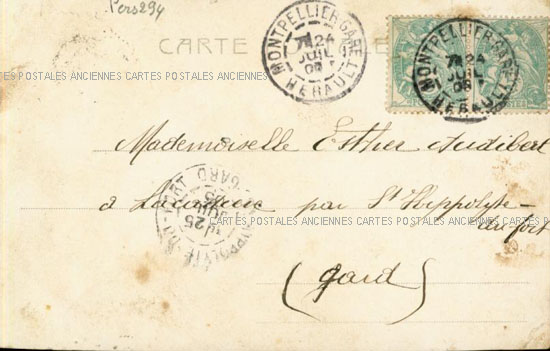 Pers294
CARTE
MONTPELLIER-GARE
24
JUIL
HERAULT
MONTPELLIER-GARE
24
JUIL
HERAULT
CARTES POSTALES ANCIENNES CARTES POSTALES ANCIENNES CARTES POSTALES ANCIENNES CARTES POSTALES ANCIENNES
Mademoiselle Esther Audibert
à par St Hippolyte-
du fort
25
GARD
CARTES POSTALES ANCIENNES CARTES POSTALES ANCIENNES CARTES POSTALES ANCIENNES
(Gard)